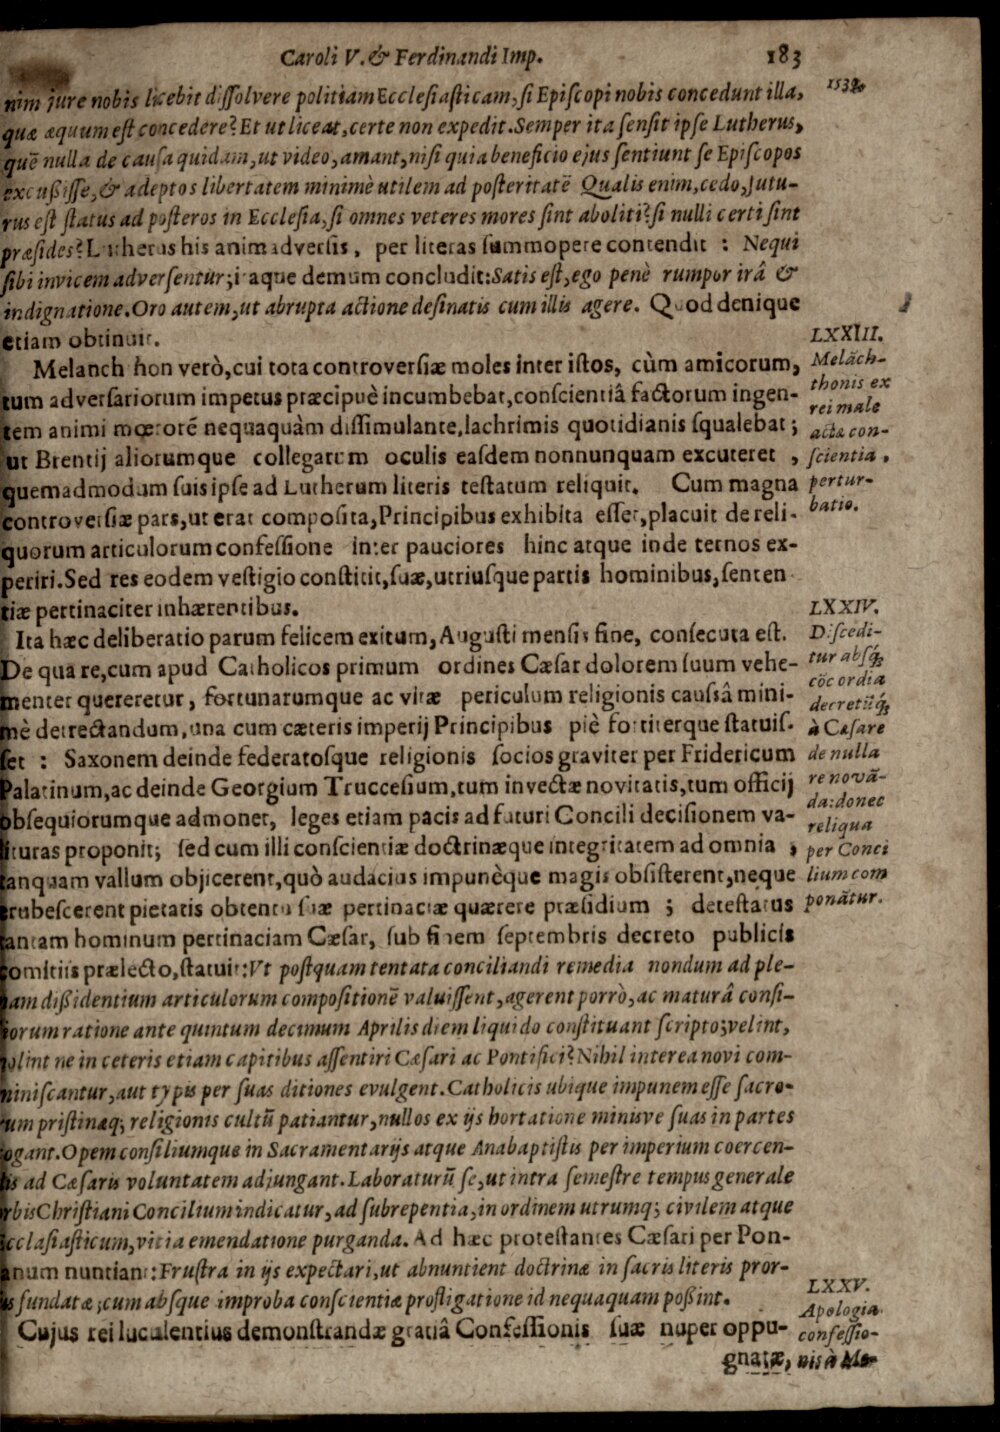 Caroli V. & Ferdinandi Imp. 183
nim jure nobis licebit dissolvere politiam Ecclesiasticam, si Episcopi nobis concedunt illa,
quæ æquum est concedere? Et ut liceat, certe non expedit. Semper ita sensit ipse Lutherus,
quē nulla de causa quidam, ut video, amant, nisi quia beneficio ejus sentiunt se Episcopos
excußisse, & adeptos libertatem minimè utilem ad posteritatē Qualis enim, cedo, futu-
rus est status ad posteros in Ecclesia, si omnes veteres mores sint aboliti? si nulli certi sint
præsides? Lutherus his animadversis, per literas summopere contendit : Nequi
sibi invicem adversentur; itaque demum concludit: Satis est, ego penè rumpor irâ &
indignatione. Oro autem, ut abrupta actione desinatis cum illis agere. Quod denique
etiam obtinuit.
Melanchthon verò, cui tota controversiæ moles inter istos, cùm amicorum,
tum adversariorum impetus præcipuè incumbebat, conscientiâ factorum ingen-
tem animi mœrorē nequaquàm dissimulante, lachrimis quotidianis squalebat;
ut Brentij aliorumque collegarum oculis easdem nonnunquam excuteret ,
quemadmodum suis ipse ad Lutherum literis testatum reliquit. Cum magna
controversiæ pars, ut erat composita, Principibus exhibita esset, placuit de reli-
quorum articulorum confessione inter pauciores hinc atque inde ternos ex-
periri. Sed res eodem vestigio constitit, suæ, utriusque partis hominibus, senten
tiæ pertinaciter inhærentibus.
Ita hæc deliberatio parum felicem exitum, Augusti mensis fine, consecuta est.
De qua re, cum apud Catholicos primum ordines Cæsar dolorem suum vehe-
menter quereretur, fortunarumque ac vitæ periculum religionis caussâ mini-
mè detrectandum, una cum cæteris imperij Principibus piè fortiterque statuis-
set : Saxonem deinde federatosque religionis socios graviter per Fridericum
Palatinum, ac deinde Georgium Truccesium, tum invectæ novitatis, tum officij
obsequiorumque admonet, leges etiam pacis ad futuri Concili decisionem va-
lituras proponit; sed cum illi conscientiæ doctrinæque integritatem ad omnia ,
tanquam vallum objicerent, quò audacius impunèque magis obsisterent, neque
erubescerent pietatis obtentu suæ pertinaciæ quærere præsidium ; detestatus
tantam hominum pertinaciam Cæsar, sub finem septembris decreto publicis
comitiis prælecto, statuit: Vt postquam tentata conciliandi remedia nondum ad ple-
nam dißidentium articulorum compositionē valuissent, agerent porrò, ac maturâ consi-
liorum ratione ante quintum decimum Aprilis diem liquido constituant scripto; velint,
nolint ne in ceteris etiam capitibus assentiri Cæsari ac Pontifici? Nihil interea novi com-
miniscantur, aut typis per suas ditiones evulgent. Catholicis ubique impunem esse sacro-
rum pristinæq; religionis cultū patiantur, nullos ex ijs hortatione minisve suas in partes
cogant. Opem consiliumque in Sacramentarijs atque Anabaptistis per imperium coercen-
dis ad Cæsaris voluntatem adjungant. Laboraturū se, ut intra semestre tempus generale
orbis Christiani Concilium indicatur, ad subrepentia, in ordinem utrumq; civilem atque
Ecclasiasticum, vitia emendatione purganda. Ad hæc protestantes Cæsari per Pon-
tanum nuntiant: Frustra in ijs expectari, ut abnuntient doctrinæ in sacris literis pror-
sus fundatæ; cum absque improba conscientiæ profligatione id nequaquam poßint.
Cujus rei luculentius demonstrandæ gratiâ Confessionis suæ nuper oppu-
gnatæ,
1530.
LXXIII.
Melāch-
thonis ex
rei male
acta con-
scientia,
pertur-
batio.
LXXIV.
Discedi-
tur absq;
cōcordia
decretūq;
à Cæsare
de nulla
re novā-
da: donec
reliqua
per Conci
lium com
ponātur.
LXXV.
Apologia
confessio-
nis à Me-